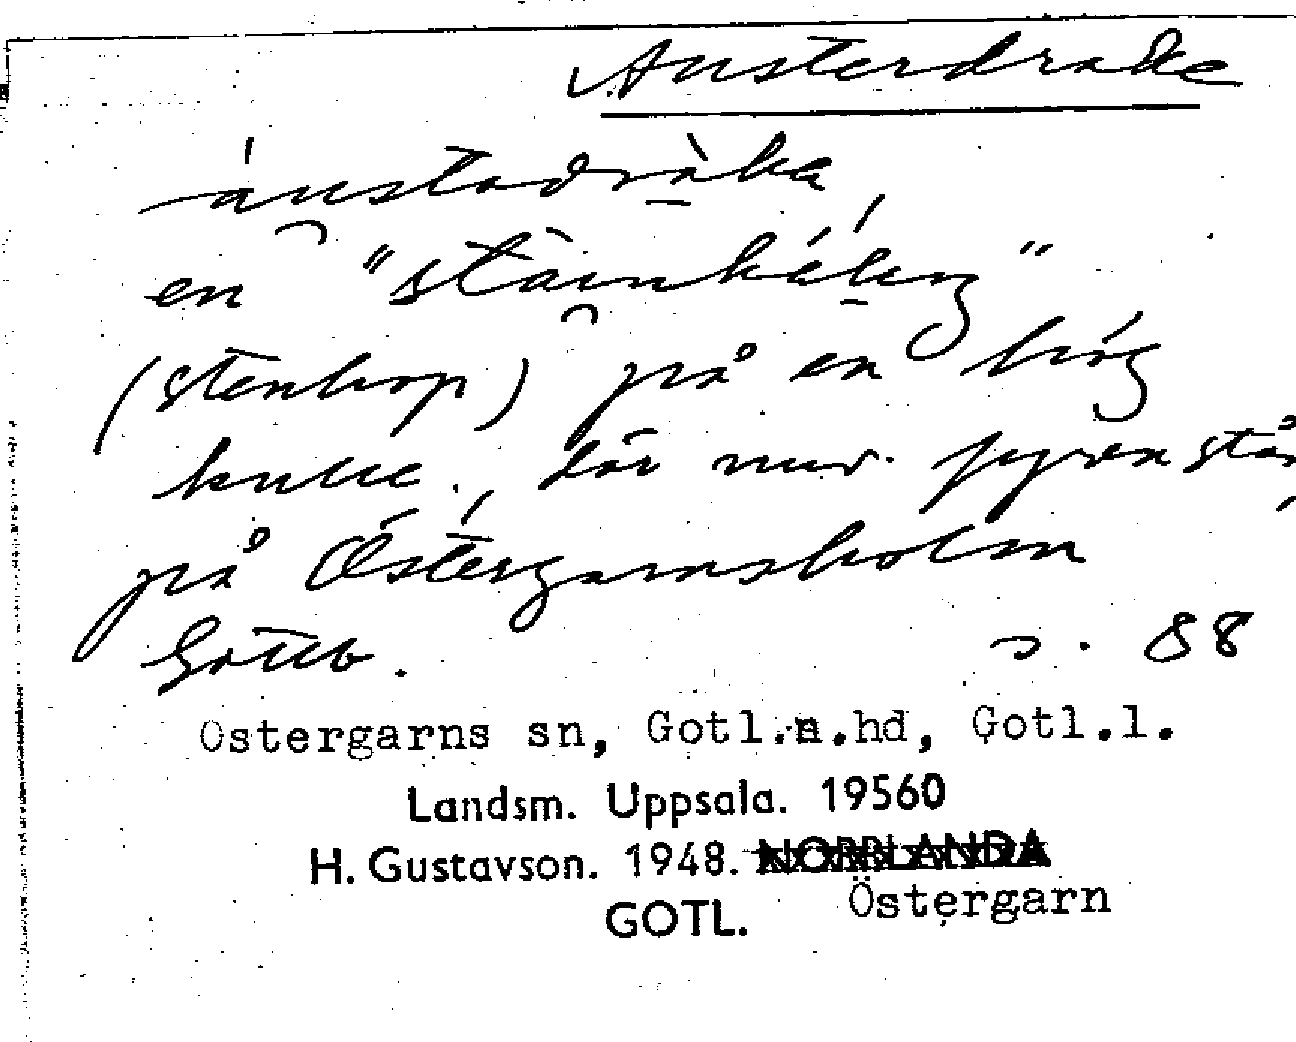 Austerdrake
áustadràka
en "stàinkálnŋ"
(stenhop) på en hög
kulle, där nuv. fyren står,
på Östergarnsholm
Gotlb. s. 88
Ostergarns sn, Gotl.n.hd, Gotl.l.
Landsm. Uppsala. 19560
H. Gustavson. 1948. NORRLANDA
Östergarn
GOTL.